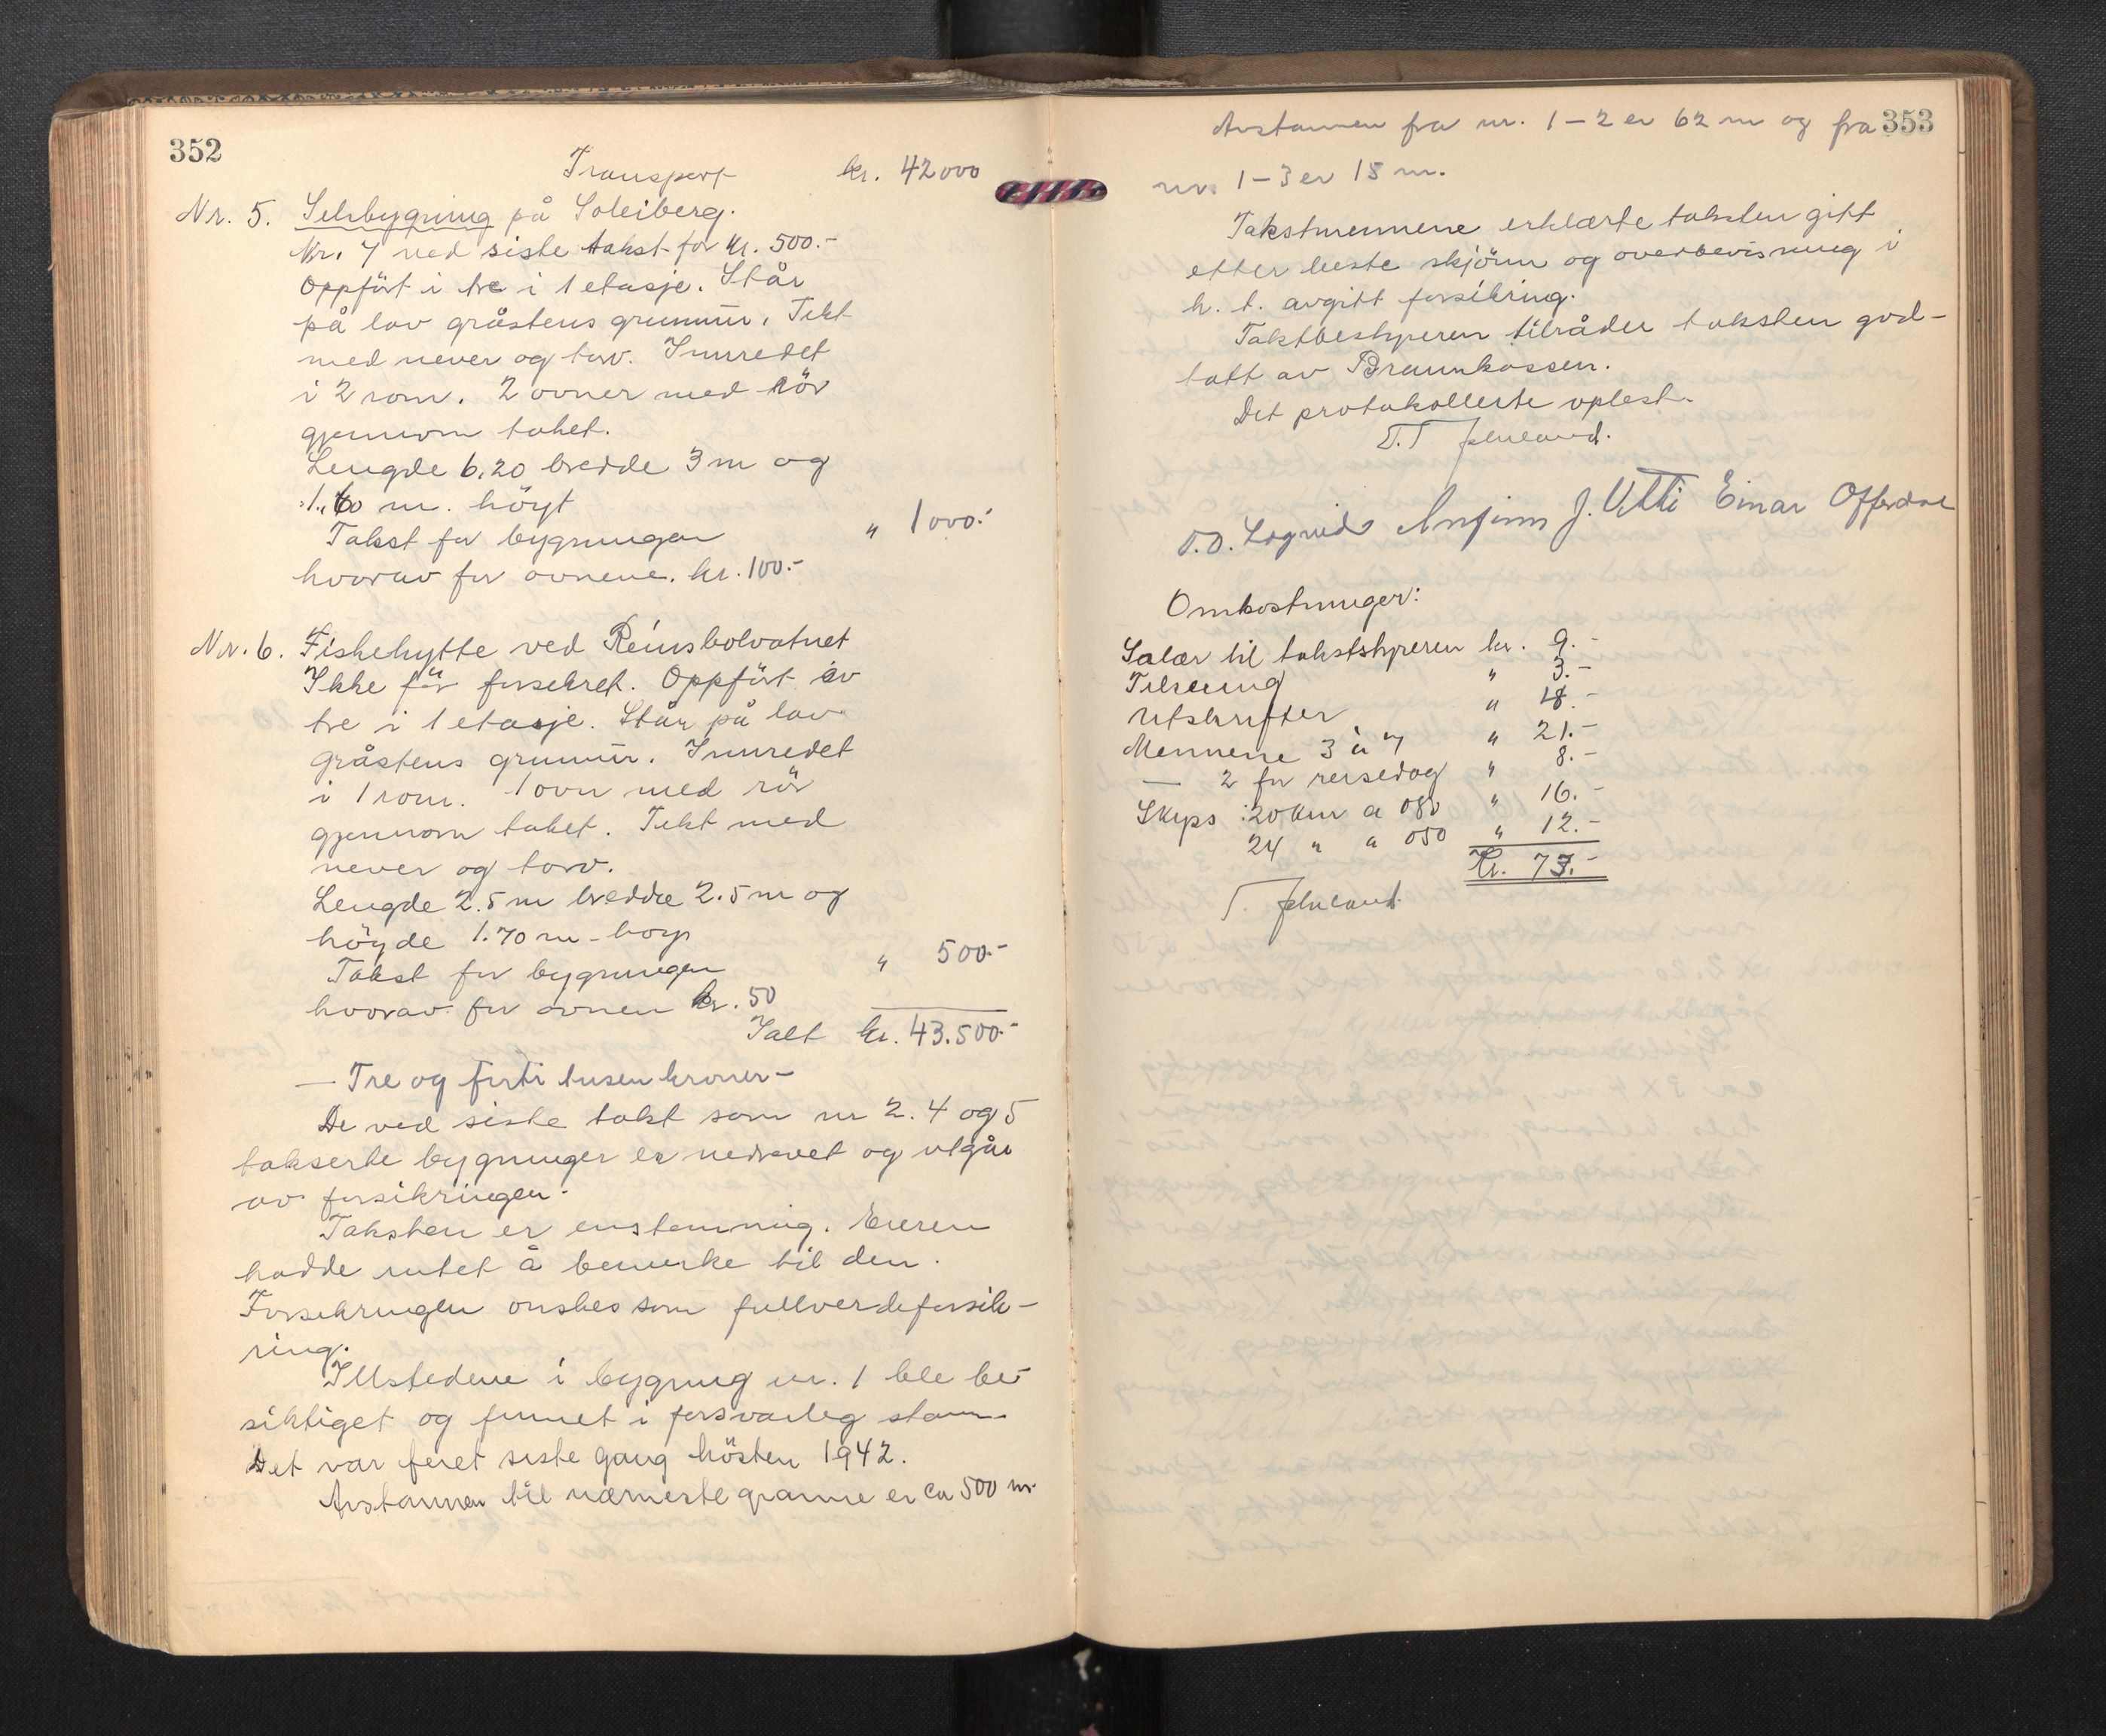 352
Transport kr. 42000
Nr. 5. Selsbygning på Soleiberg.
Nr. 7 ved siste takst for kr. 500.-
Oppfört i tre i 1 etasje. Står
på lav gråstens grunnmur. Tekt
med never og torv. Innredet
i 2 rom. 2 ovner med rör
gjennom taket.
Lengde 6.20 bredde 3 m og
1.60 m. höyt
Takst for bygningen " 1000.-
hvorav for ovnene. kr. 100.-
Nr. 6. Fiskehytte ved Reinsbolvatnet
Ikke för forsekret. Oppfört av
tre i 1 etasje. Står på lav
gråstens grunmur. Innredet
i 1 rom. 1 ovn med rör
gjennom taket. Tekt med
never og torv.
Lengde 2.5 m bredde 2.5 m og
höyde 1.70 m
Takst for bygningen " 500.-
hvorav for ovnen kr. 50
Ialt kr. 43.500.-
— Tre og förti tusen kroner —
De ved siste takst som nr 2. 4 og 5
takserte bygninger er nedrevet og utgår
av forsikringen.
Taksten er enstemmig. Eieren
hadde intet å bemerke til den.
Forsekringen önskes som fullverdeforsik-
ring.
Illstedene i bygning nr. 1 ble be-
siktiget og funnet i forsvarleg stann.
Det var feiet siste gang hösten 1942.
Avstannen til nærmeste granne er ca 500 m.
Avstannen fra nr. 1 – 2 er 62 m og fra 353
nr. 1 – 3 er 18 m.
Takstmennene erklærte taksten gitt
etter beste skjönn og overbevisning i
h. t. avgitt forsikring.
Takstbestyreren tilråder taksten god-
tatt av Brannkassen.
Det protokollerte oplest.
T. T.
O. O. Anfinn J. Vetti Einar Offerdal
Omkostninger:
Salær til takstsyreren kr. 9.-
" 3.-
Utskrifter " 18.-
Mennene 3 à 7 " 21.-
— 2 for reisedag " 8.-
Skyss : 20 km a 080 " 16.-
24 " a 050 " 12.-
Kr. 73.-
T.